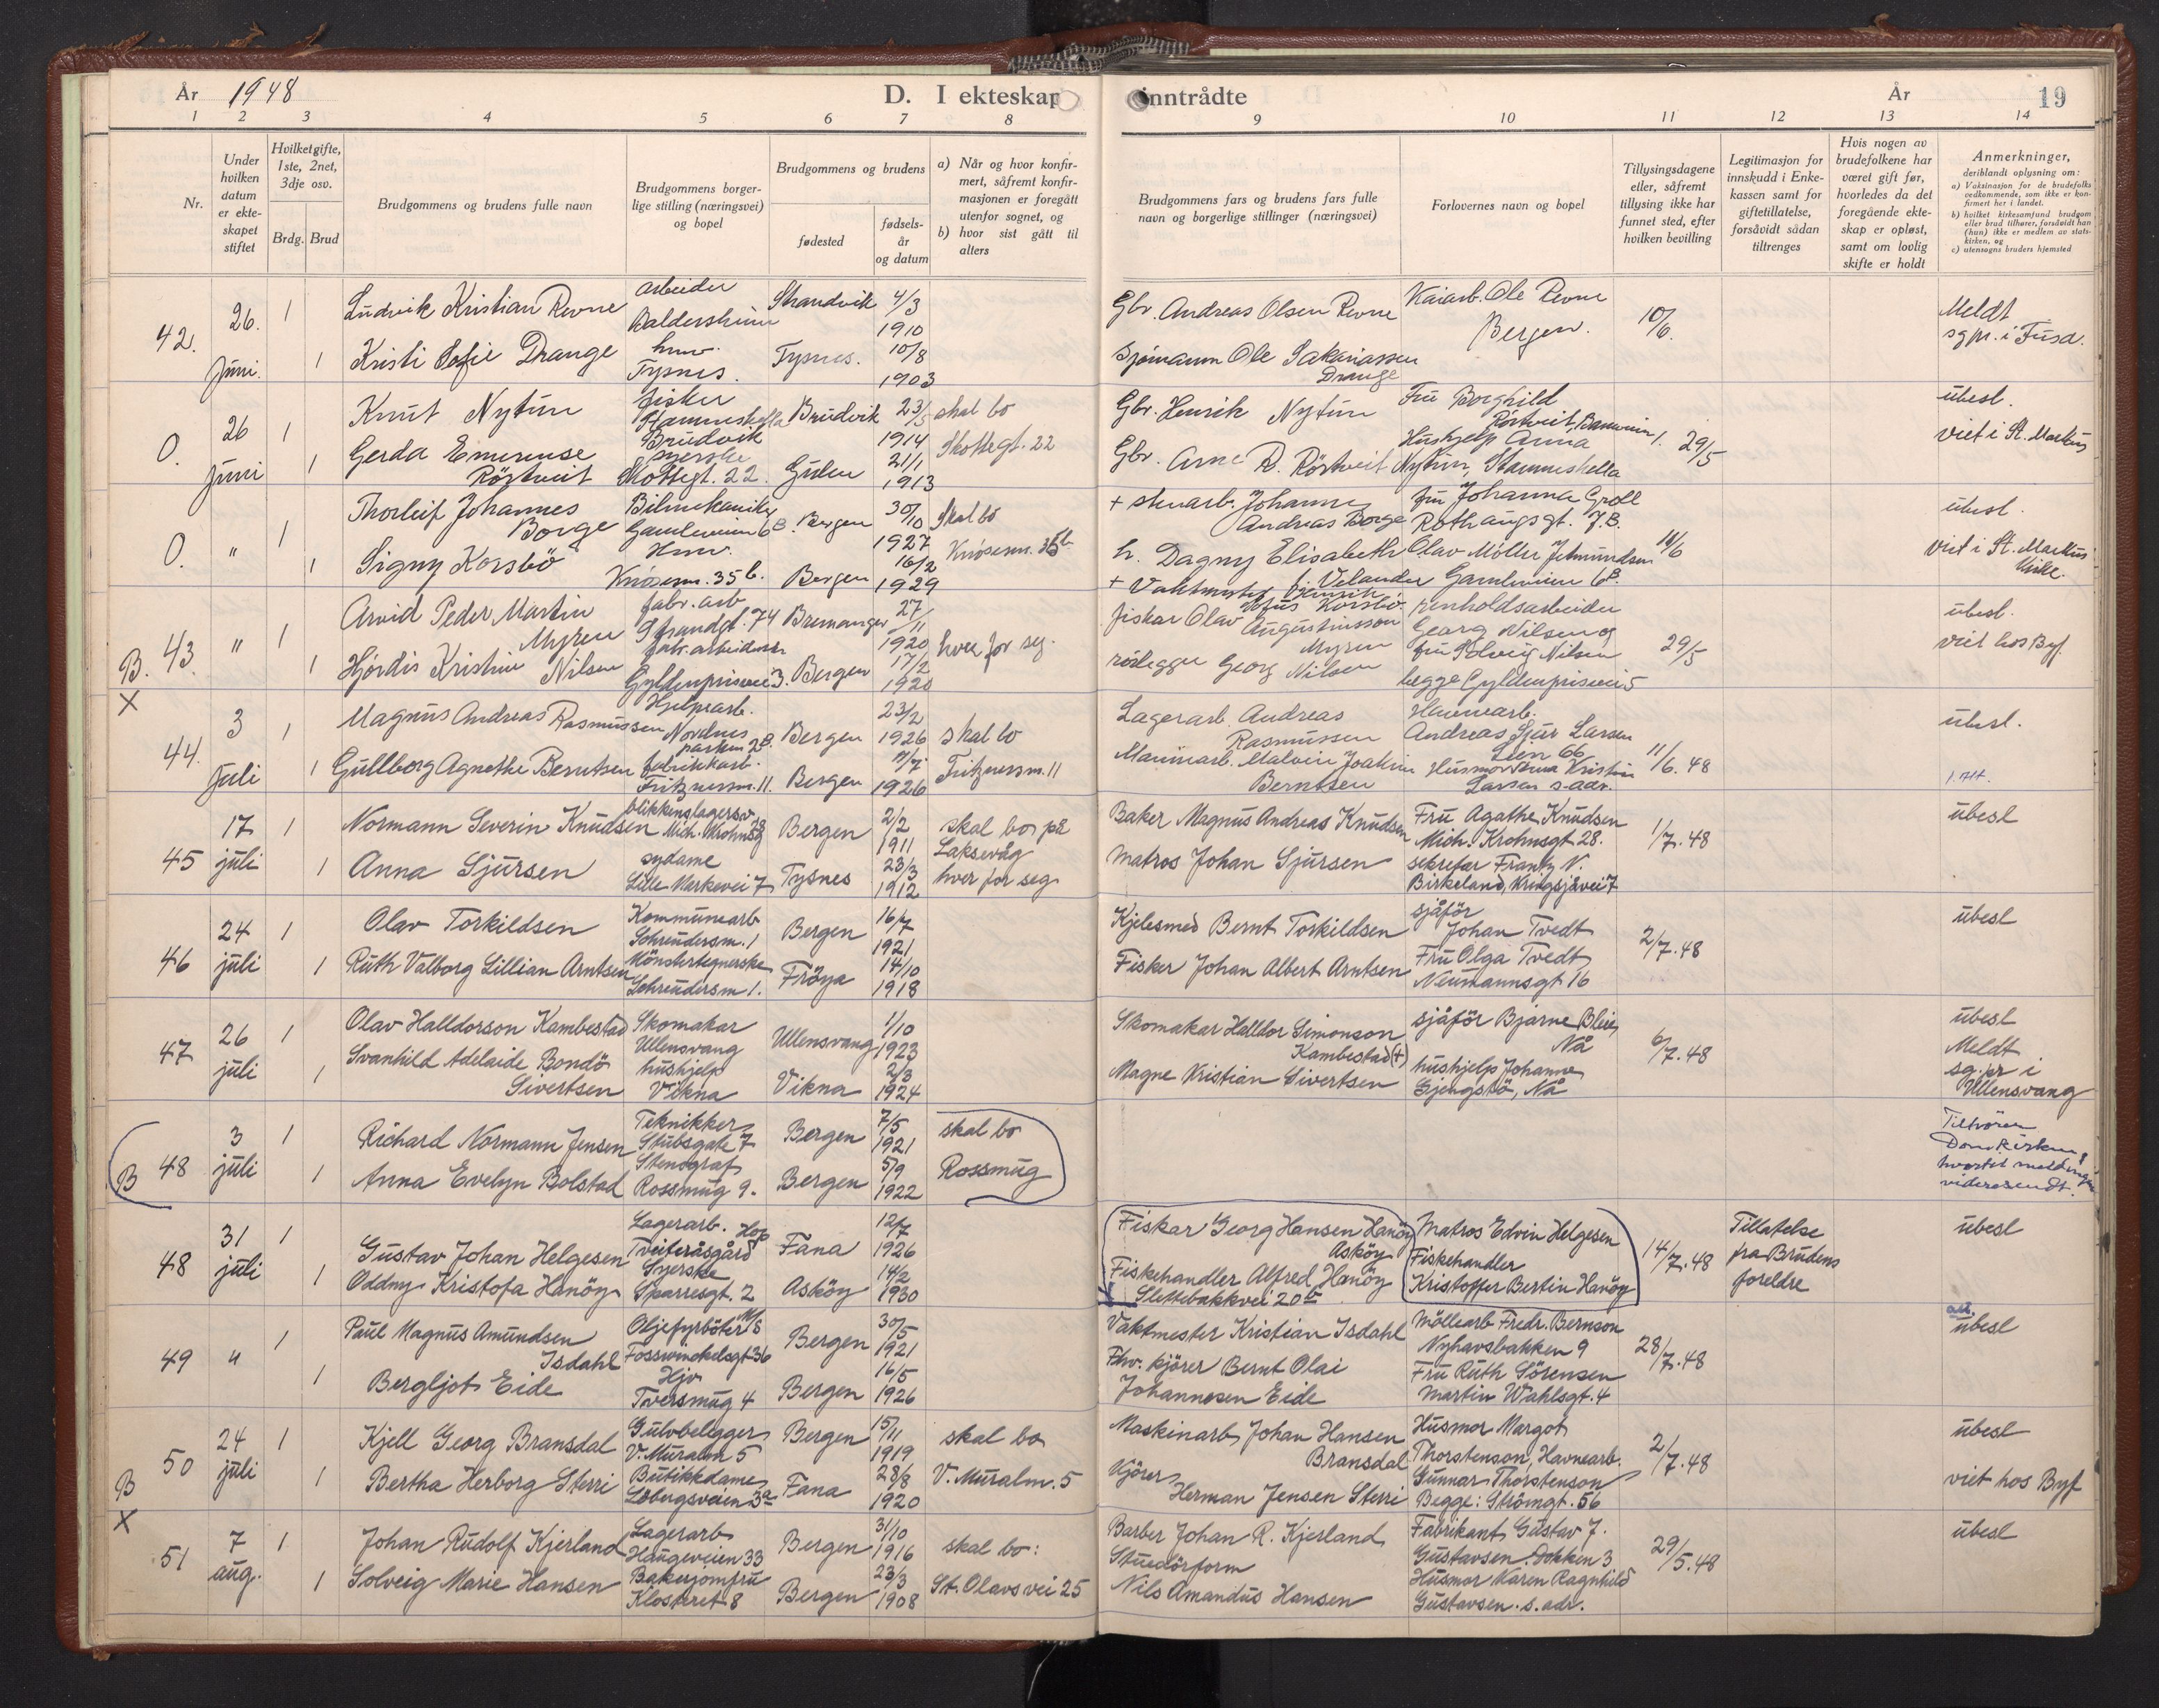 År 1948
D. I ekteskap inntrådte
År
19
1 2 3 4 5 6 7 8 9 10 11 12 13 14
Nr.
Under hvilken datum er ekteskapet stiftet
Hvilket gifte, 1ste, 2net, 3dje osv.
Brdg. Brud
Brudgommens og brudens fulle navn
Brudgommens borgerlige stilling (næringsvei) og bopel
Brudgommens og brudens
fødested
fødselsår og datum
a) Når og hvor konfirmert, såfremt konfirmasjonen er foregått utenfor sognet, og
b) hvor sist gått til alters
Brudgommens fars og brudens fars fulle navn og borgerlige stillinger (næringsvei)
Forlovernes navn og bopel
Tillysingsdagene eller, såfremt tillysing ikke har funnet sted, efter hvilken bevilling
Legitimasjon for innskudd i Enkekassen samt for giftetillatelse, forsåvidt sådan tiltrenges
Hvis nogen av brudefolkene har været gift før, hvorledes da det foregående ekteskap er opløst, samt om lovlig skifte er holdt
Anmerkninger, deriblandt oplysning om:
a) Vaksinasjon for de brudefolks vedkommende, som ikke er konfirmert her i landet.
b) hvilket kirkesamfund brudgom eller brud tilhører, forsåvidt han (hun) ikke er medlem av statskirken, og
c) utensogns bruders hjemsted
42. 26. Juni. 1 1
Ludvik Kristian Revne arbeider Baldersheim Strandvik 4/3 1910
Kristi Sofie Drange hmv. Tysnes. Tysnes. 10/8 1903
Gbr. Andreas Olsen Revne
Sjømann Ole Sakariassen Drange
Kaiarb. Ole Revne Bergen.
10/6.
Meldt sgpr. i Fusa.
O. 26 Juni 1 1
Knut Nytun fisker Stamneshella Brudvik Brudvik 23/5 1914 skal bo
Gerda Emerense Rörtveit syerske Skottegt. 22 Gulen 21/1 1913 Skottegt. 22
Gbr. Henrik Nytun
Gbr. Arne R. Rörtveit
Fru Borghild Rörtveit,
Hushjelp Anna Nytun, Stamneshella
29/5
ubesl.
viet i St. Markus
O. " 1 1
Thorleif Johannes Borge Bilmekaniker Gamleveien 6B. Bergen 30/10 1927 Skal bo
Signy Korsbö Hmv. Knøsesm. 35 b. Bergen 16/2 1929 Knøsesm. 35b
+ stuearb. Johannes Andreas Borge
h. Dagny Elisabeth Velander
+ Vaktmester Henrik Korsbö
fru Johanna Groll Rothaugsgt. 7.B.
Olav Möller Jetmundsen Gamleveien 6B.
14/6
ubesl.
viet i St. Markus kirke.
B. 43. " 1 1
Arvid Peder Martin Myren fabr. arb Strandgt. 74 Bremanger 27/11 1920 hver for seg
Hjördis Kristine Nilsen fabr. arbeiderske Gyldenprisvei 3. Bergen 17/2 1920
fiskar Olav Augustinusson Myren
rörlegger Georg Nilsen
renholdsarbeider Georg Nilsen og
fru Solveig Nilsen
begge Gyldenprisvei 5
29/5
ubesl.
viet hos Byf.
X
44. 3 Juli 1 1
Magnus Andreas Rasmussen Hjelpearb. Nordnesparken 2B. Bergen 23/2 1926 skal bo
Gullborg Agnethe Berntsen fabrikkarb. Fritznersm. 11. Bergen 11/7 1926 Fritznersm. 11
Lagerarb. Andreas Rasmussen
Malvin Joakim Berntsen
Havnearb. Andreas Sjur Larsen Lien 66
Husmor Kristine Larsen s. adr.
11/6. 48
ubesl.
45 17 juli 1 1
Normann Severin Knudsen blikkenslagersv. Mich. Krohnsg 28 Bergen 2/2 1911 skal bo på Laksevåg
Anna Sjursen sydame Lille Markevei 7 Tysnes 23/3 1912 hver for seg
Baker Magnus Andreas Knudsen
Matros Johan Sjursen
Fru Agathe Knudsen Mich. Krohnsgt 28.
sekretær Frantz N. Birkeland, Kringsjåvei 7
1/7. 48
ubesl
46 24 juli 1 1
Olav Torkildsen Kommunearb Schreudersm. 1 Bergen 16/7 1921
Ruth Valborg Lillian Arntsen Mönstertegnerske Schreudersm 1. Fröya 14/10 1918
Kjelesmed Bernt Torkildsen
Fisker Johan Albert Arntsen
sjåför Johan Tvedt
Fru Olga Tvedt Neumannsgt 16
2/7. 48
ubesl
47 26 juli 1 1
Olav Halldorson Kambestad Skomakar Ullensvang Ullensvang 1/10 1923
Svanhild Adelaide Bondö Sivertsen hushjelp Vikna Vikna 2/3 1924
Skomakar Halldor Simonson Kambestad (+)
Magne Kristian Sivertsen
sjåför Bjarne Bleie, Nå
hushjelp Johanne Gjengstö, Nå
6/7. 48
ubesl
Meldt sg.pr i Ullensvang
B 48 3 juli 1 1
Richard Normann Jensen Teknikker Stubsgate 7 Bergen 7/5 1921 skal bo
Anna Evelyn Bolstad Stenograf Rossmug 9. Bergen 5/9 1922 Rossmug
Tilhörer Domkirken, hvortil meldingen videresendt.
48 31 juli 1 1
Gustav Johan Helgesen Lagerarb. Hop Tveiteråsgård Fana 12/7 1926
Oddny Kristofa Hanöy Syerske Sparresgt. 2 Asköy 14/2 1930
Fiskar Georg Hansen Hanöy Asköy
Fiskehandler Alfred Hanöy Slettebakkvei 20b
Matros Edvin Helgesen
Fiskehandler Kristoffer Bertin Hanöy
14/7. 48
Tillatelse fra Brudens foreldre
ubesl
49 " 1 1
Paul Magnus Amundsen Isdahl Oljefyrböter M/S Fosswinckelsgt 36 Bergen 30/5 1921
Bergljot Eide Hjv Tversmug 4 Bergen 16/5 1926
Vaktmester Kristian Isdahl
Fhv. kjörer Bernt Olai Johannesen Eide
Möllearb Fredr. Bernson Nyhavsbakken 9
Fru Ruth Sörensen Martin Wahlsgt. 4
28/7. 48
ubesl
B 50 24 juli 1 1
Kjell Georg Bransdal Gulvbelegger V. Muralm 5 Bergen 15/11 1919 skal bo
Bertha Herborg Sterri Butikkdame Löbergsveien 3a Fana 28/8 1920 V. Muralm. 5
Maskinarb Johan Hansen Bransdal
Kjörer Herman Jensen Sterri
Husmor Margot Thorstenson, Havnearb. Gunnar Thorstenson
Begge: Strömgt. 56
2/7. 48
ubesl
viet hos Byf
X
51 7 aug. 1 1
Johan Rudolf Kjerland Lagerarb Haugeveien 33 Bergen 31/10 1916 skal bo:
Solveig Marie Hansen Bakerjomfru Klosteret 8 Bergen 23/3 1908 St. Olavs vei 25
Barber Johan R. Kjerland
Stuerform Nils Amandus Hansen
Fabrikant Gustav J. Gustavsen. Dokken 3
Husmor Karen Ragnhild Gustavsen. s. adr.
29/5. 48
ubesl